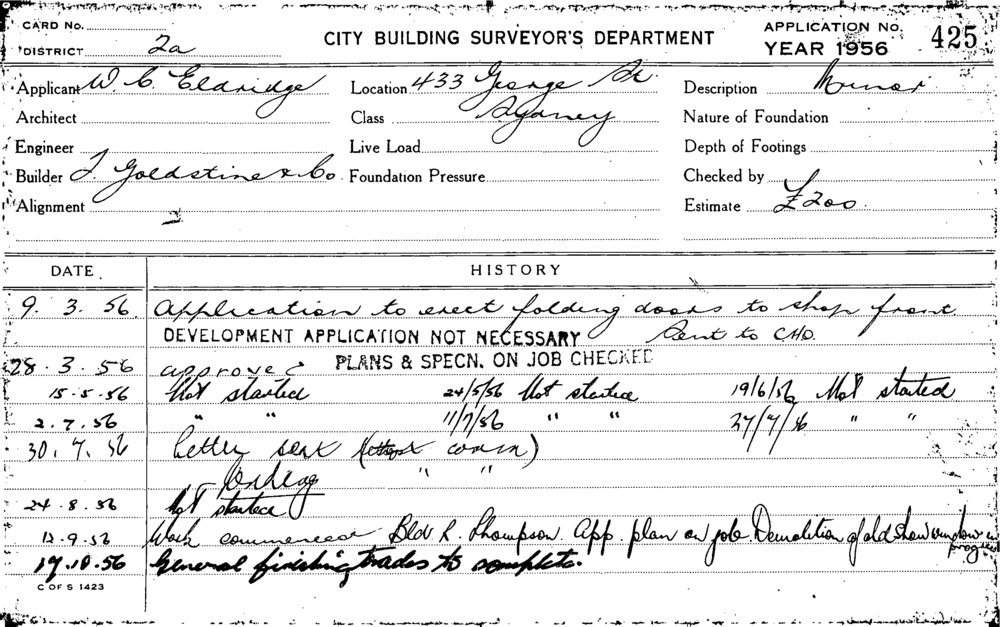 CARD No.
DISTRICT 2a
CITY BUILDING SURVEYOR'S DEPARTMENT
APPLICATION No. 425
YEAR 1956
Applicant W. C. Eldridge Location 433 George St. Description Minor
Architect Class Sydney Nature of Foundation
Engineer Live Load Depth of Footings
Builder J. Goldstine & Co. Foundation Pressure Checked by
Alignment Estimate £200
DATE HISTORY
9. 3. 56 Application to erect folding doors to shop front
DEVELOPMENT APPLICATION NOT NECESSARY Sent to CHO.
28. 3. 56 approved PLANS & SPECN. ON JOB CHECKED
15. 5. 56 Not started 24/5/56 Not started 19/6/56 Not started
2. 7. 56 " " 11/7/56 " " 27/7/56 " "
30. 7. 56 Letter sent ( comm)
" "
24. 8. 56 Not started
12. 9. 56 Work commenced Bldr R. Thompson. App. plan on job. Demolition of old show window in progress
19. 10. 56 General finishing trades to complete.
C OF S 1423